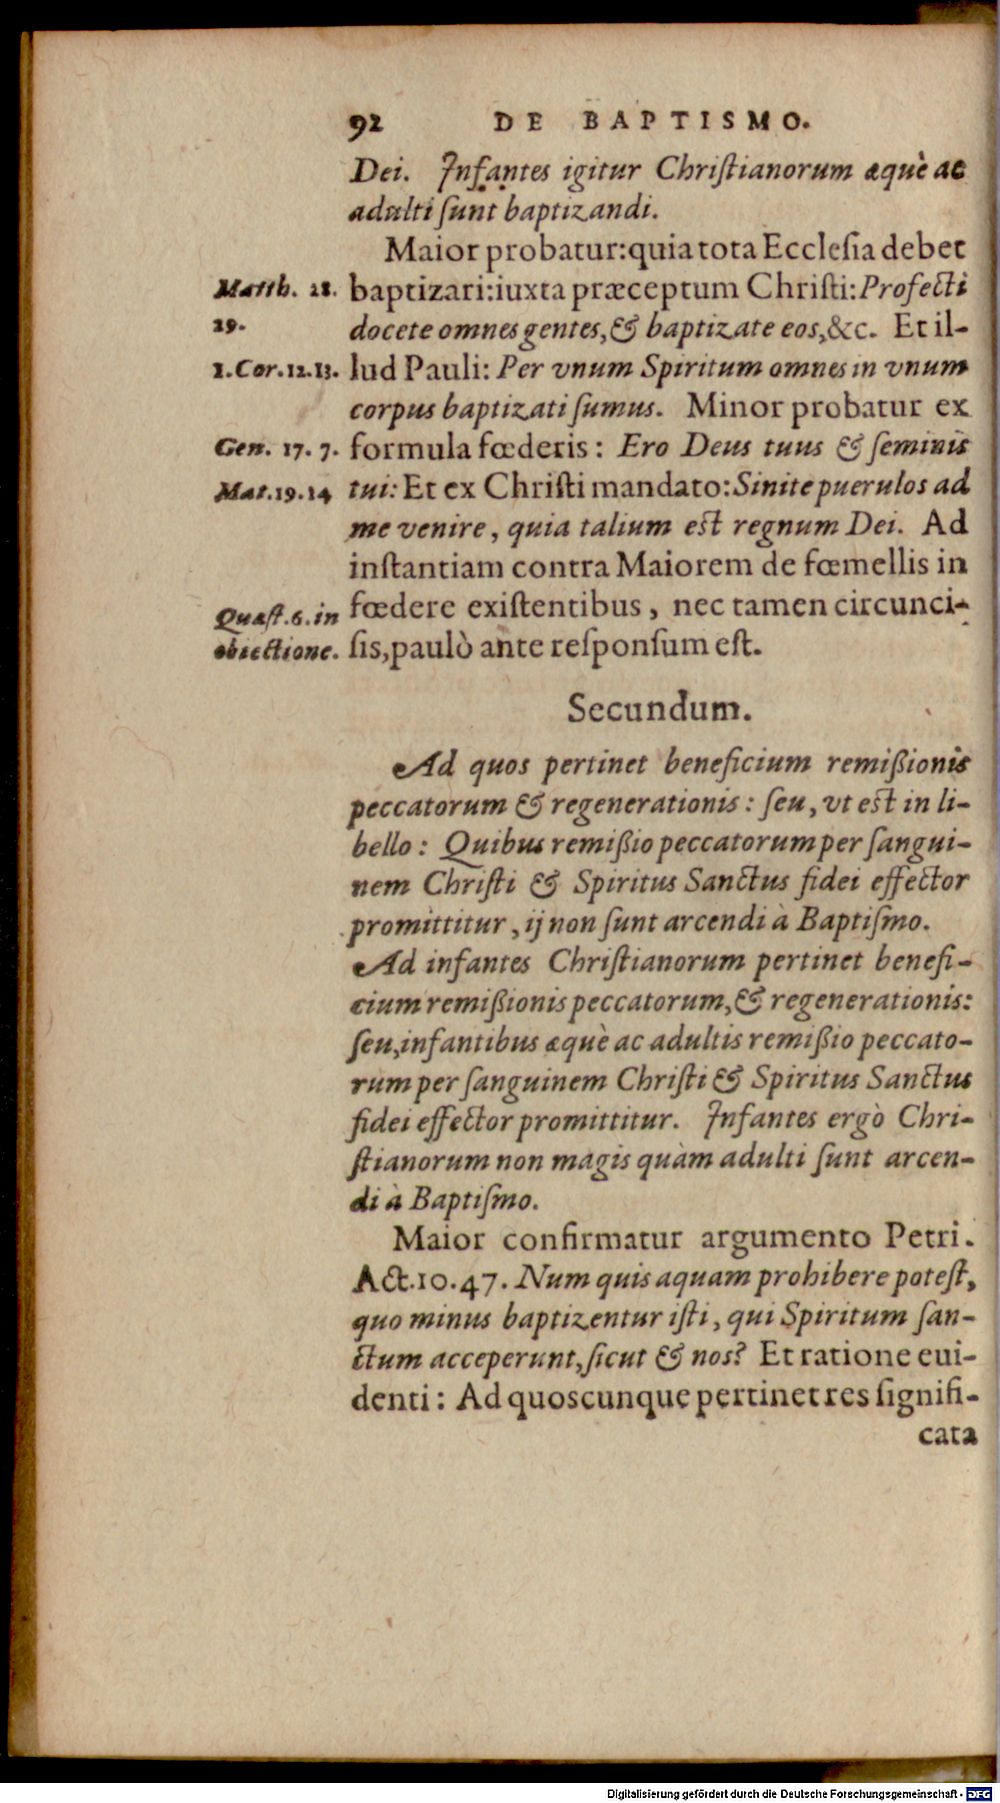 92 DE BAPTISMO.
Dei. Infantes igitur Chriſtianorum æquè ac
adulti ſunt baptizandi.
Maior probatur: quia tota Eccleſia debet
Matth. 28. baptizari: iuxta præceptum Chriſti: Profecti
29. docete omnes gentes, & baptizate eos, &c. Et il-
1. Cor. 12. 13. lud Pauli: Per vnum Spiritum omnes in vnum
corpus baptizati ſumus. Minor probatur ex
Gen. 17. 7. formula fœderis: Ero Deus tuus & ſeminis
Mat. 19. 14 tui: Et ex Chriſti mandato: Sinite puerulos ad
me venire, quia talium est regnum Dei. Ad
inſtantiam contra Maiorem de fœmellis in
Quæſt. 6. in fœdere exiſtentibus, nec tamen circunci-
obiectione. ſis, paulò ante reſponſum eſt.
Secundum.
Ad quos pertinet beneficium remißionis
peccatorum & regenerationis: ſeu, vt est in li-
bello: Quibus remißio peccatorum per ſangui-
nem Chriſti & Spiritus Sanctus fidei effector
promittitur, ij non ſunt arcendi à Baptiſmo.
Ad infantes Chriſtianorum pertinet benefi-
cium remißionis peccatorum, & regenerationis:
ſeu, infantibus æquè ac adultis remißio peccato-
rum per ſanguinem Chriſti & Spiritus Sanctus
fidei effector promittitur. Infantes ergò Chri-
ſtianorum non magis quàm adulti ſunt arcen-
di à Baptiſmo.
Maior confirmatur argumento Petri.
Act. 10. 47. Num quis aquam prohibere poteſt,
quo minus baptizentur iſti, qui Spiritum ſan-
ctum acceperunt, ſicut & nos? Et ratione eui-
denti: Ad quoscunque pertinet res ſignifi-
cata
Digitalisierung gefördert durch die Deutsche Forschungsgemeinschaft - DFG